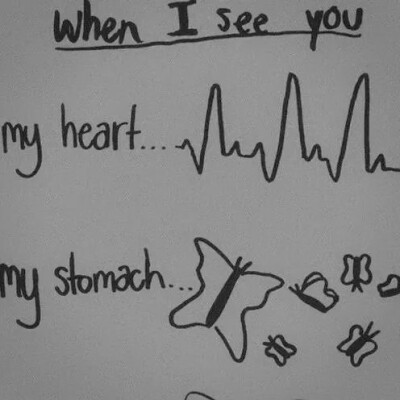 When I see you
my heart...
my stomach...